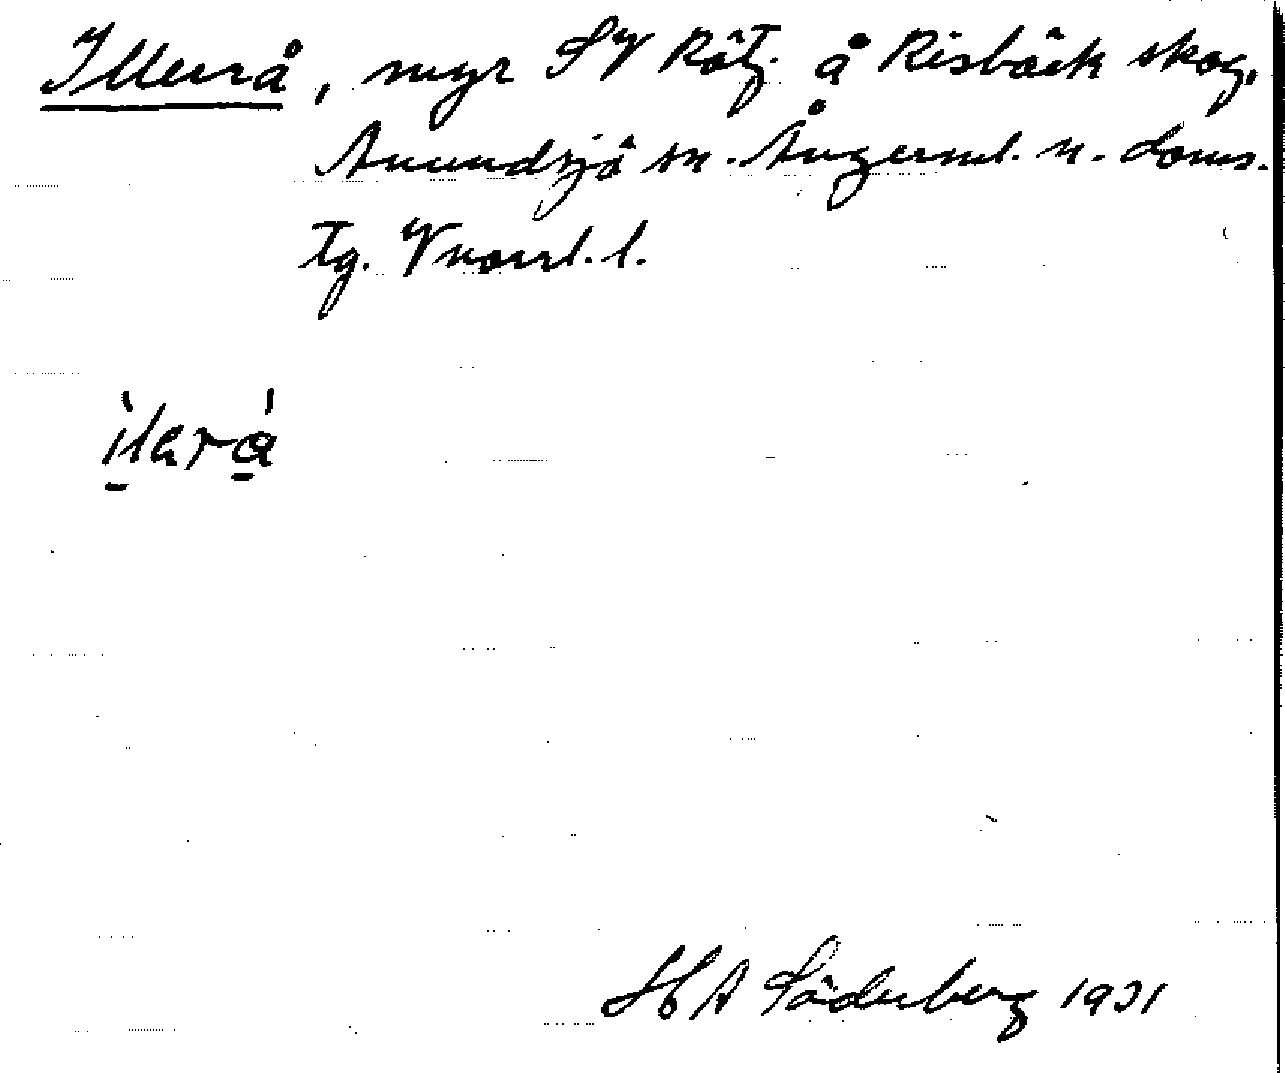 Illerrå, myr SV Rötj. å Risbäck skog,
Anundsjö sn. Ångerml. n. Doms.
tg. Vnorrl. l.
ìlerá
H A Söderberg 1931